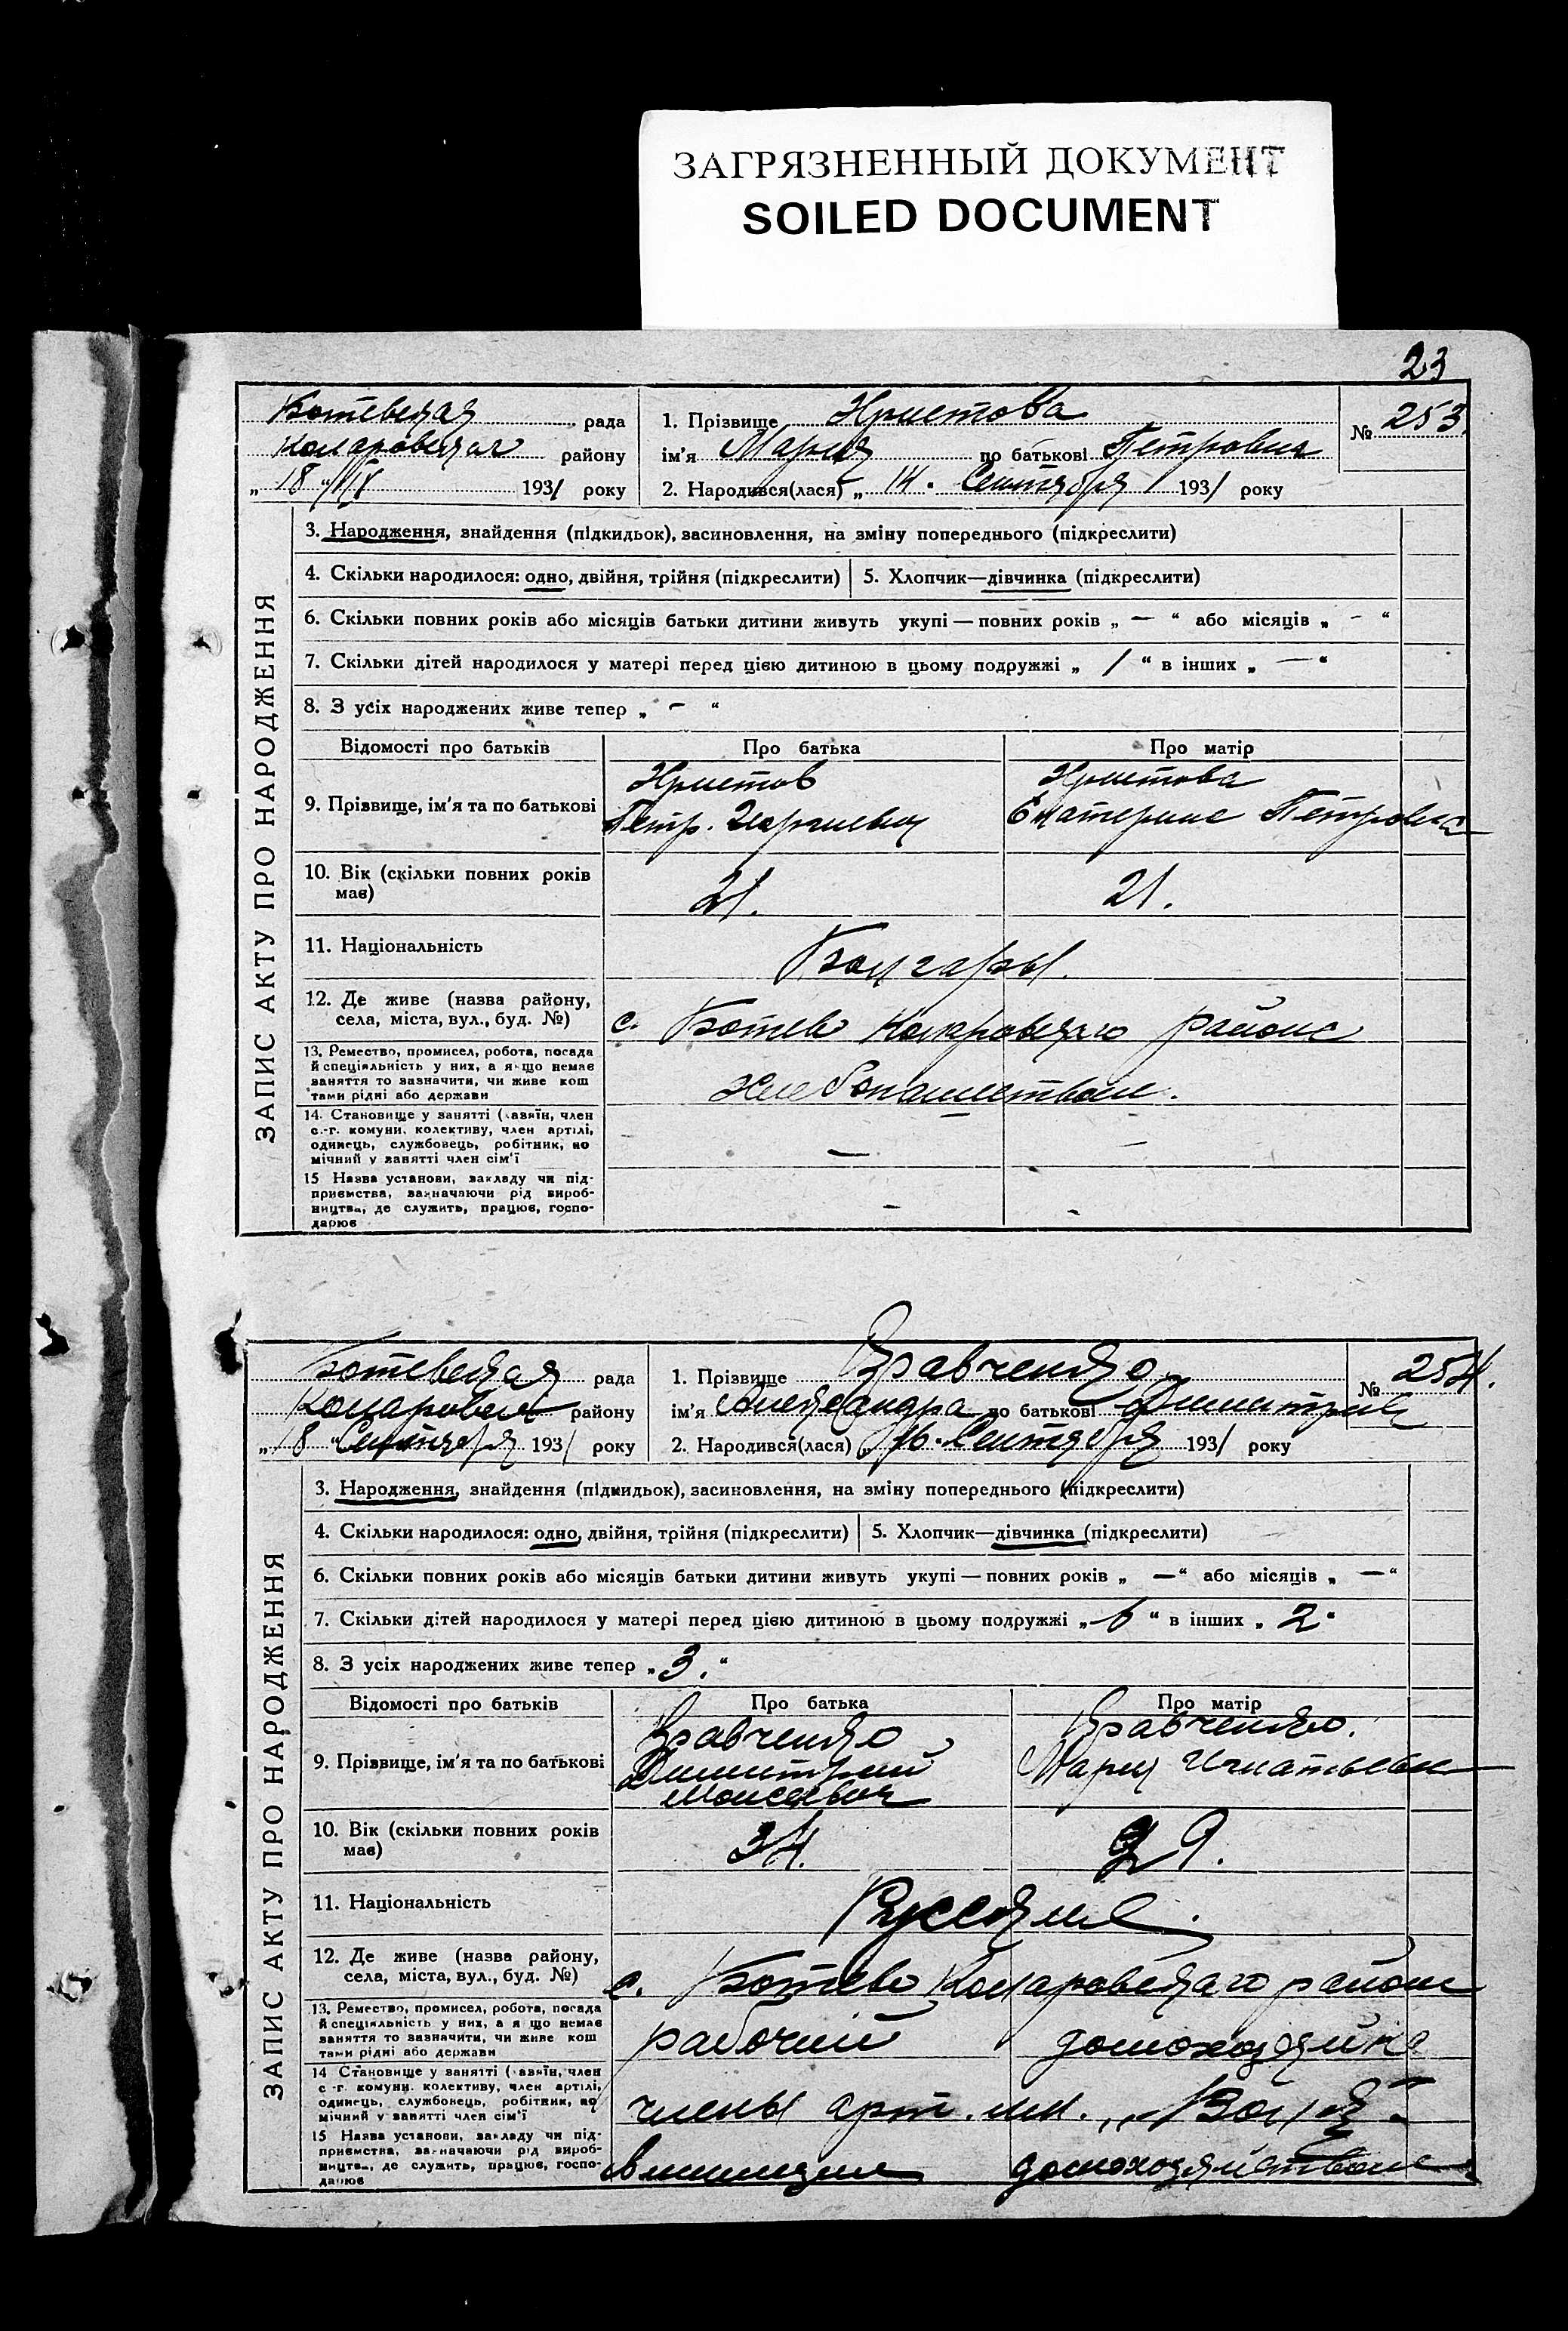 ЗАГРЯЗНЕННЫЙ ДОКУМЕНТ
SOILED DOCUMENT
23
ЗАПИС АКТУ ПРО НАРОДЖЕННЯ
Ботевская рада
Коларовская району
„ 18 “ 1931 року
1. Прізвище Христова
№ 253.
ім'я Мария по батькові Петровна
2. Народився(лася) „ 14. Сентября 1931 року
3. Народження, знайдення (підкидьок), засиновлення, на зміну попереднього (підкреслити)
4. Скільки народилося: одно, двійня, трійня (підкреслити)
5. Хлопчик—дівчинка (підкреслити)
6. Скільки повних років або місяців батьки дитини живуть укупі — повних років „ — “ або місяців „ - “
7. Скільки дітей народилося у матері перед цією дитиною в цьому подружжі „ 1 “ в інших „ — “
8. З усіх народжених живе тепер „ - “
Відомості про батьків Про батька Про матір
9. Прізвище, ім'я та по батькові
Христов
Петр.
Христова
Екатерина Петровна
10. Вік (скільки повних років має)
21. 21.
11. Національність
Болгары.
12. Де живе (назва району,
села, міста, вул., буд. №)
с. Ботево Коларовскаго района
13. Ремество, промисел, робота, посада
й спеціяльність у них, а якщо немає
заняття то зазначити, чи живе кош
тами рідні або держави
Хлебопашеством.
14. Становище у занятті (хазяїн, член
с.-г. комуни, колективу, член артілі,
одинець, службовець, робітник, по
мічний у занятті член сім'ї
— —
15 Назва установи, закладу чи під-
приємства, зазначаючи рід вироб-
ництва, де служить, працює, госпо-
дарює
- -
ЗАПИС АКТУ ПРО НАРОДЖЕННЯ
Ботевская рада
Коларовская району
„ 18 “ Сентября 1931 року
1. Прізвище Кравченко
№ 254.
ім'я Александра по батькові
2. Народився(лася) „ 16. Сентября 1931 року
3. Народження, знайдення (підкидьок), засиновлення, на зміну попереднього (підкреслити)
4. Скільки народилося: одно, двійня, трійня (підкреслити)
5. Хлопчик—дівчинка (підкреслити)
6. Скільки повних років або місяців батьки дитини живуть укупі — повних років „ — “ або місяців „ — “
7. Скільки дітей народилося у матері перед цією дитиною в цьому подружжі „ 6 “ в інших „ 2 “
8. З усіх народжених живе тепер „ 3. “
Відомості про батьків Про батька Про матір
9. Прізвище, ім'я та по батькові
Кравченко
Димитрий
Моисеевич
Кравченко.
Мария Игнатьевна
10. Вік (скільки повних років має)
34. 29.
11. Національність
Русские.
12. Де живе (назва району,
села, міста, вул., буд. №)
с. Ботево Коларовскаго района
13. Ремество, промисел, робота, посада
й спеціяльність у них, а якщо немає
заняття то зазначити, чи живе кош
тами рідні або держави
рабочий домохозяйка
14 Становище у занятті (хазяїн, член
с-г. комуни, колективу, член артілі,
одинець, службовець, робітник, по
мічний у занятті член сім'ї
члены арт. им.
15 Назва установи, закладу чи під-
приємства, зазначаючи рід вироб-
ництва, де служить, працює, госпо-
дарює
домохозяйством